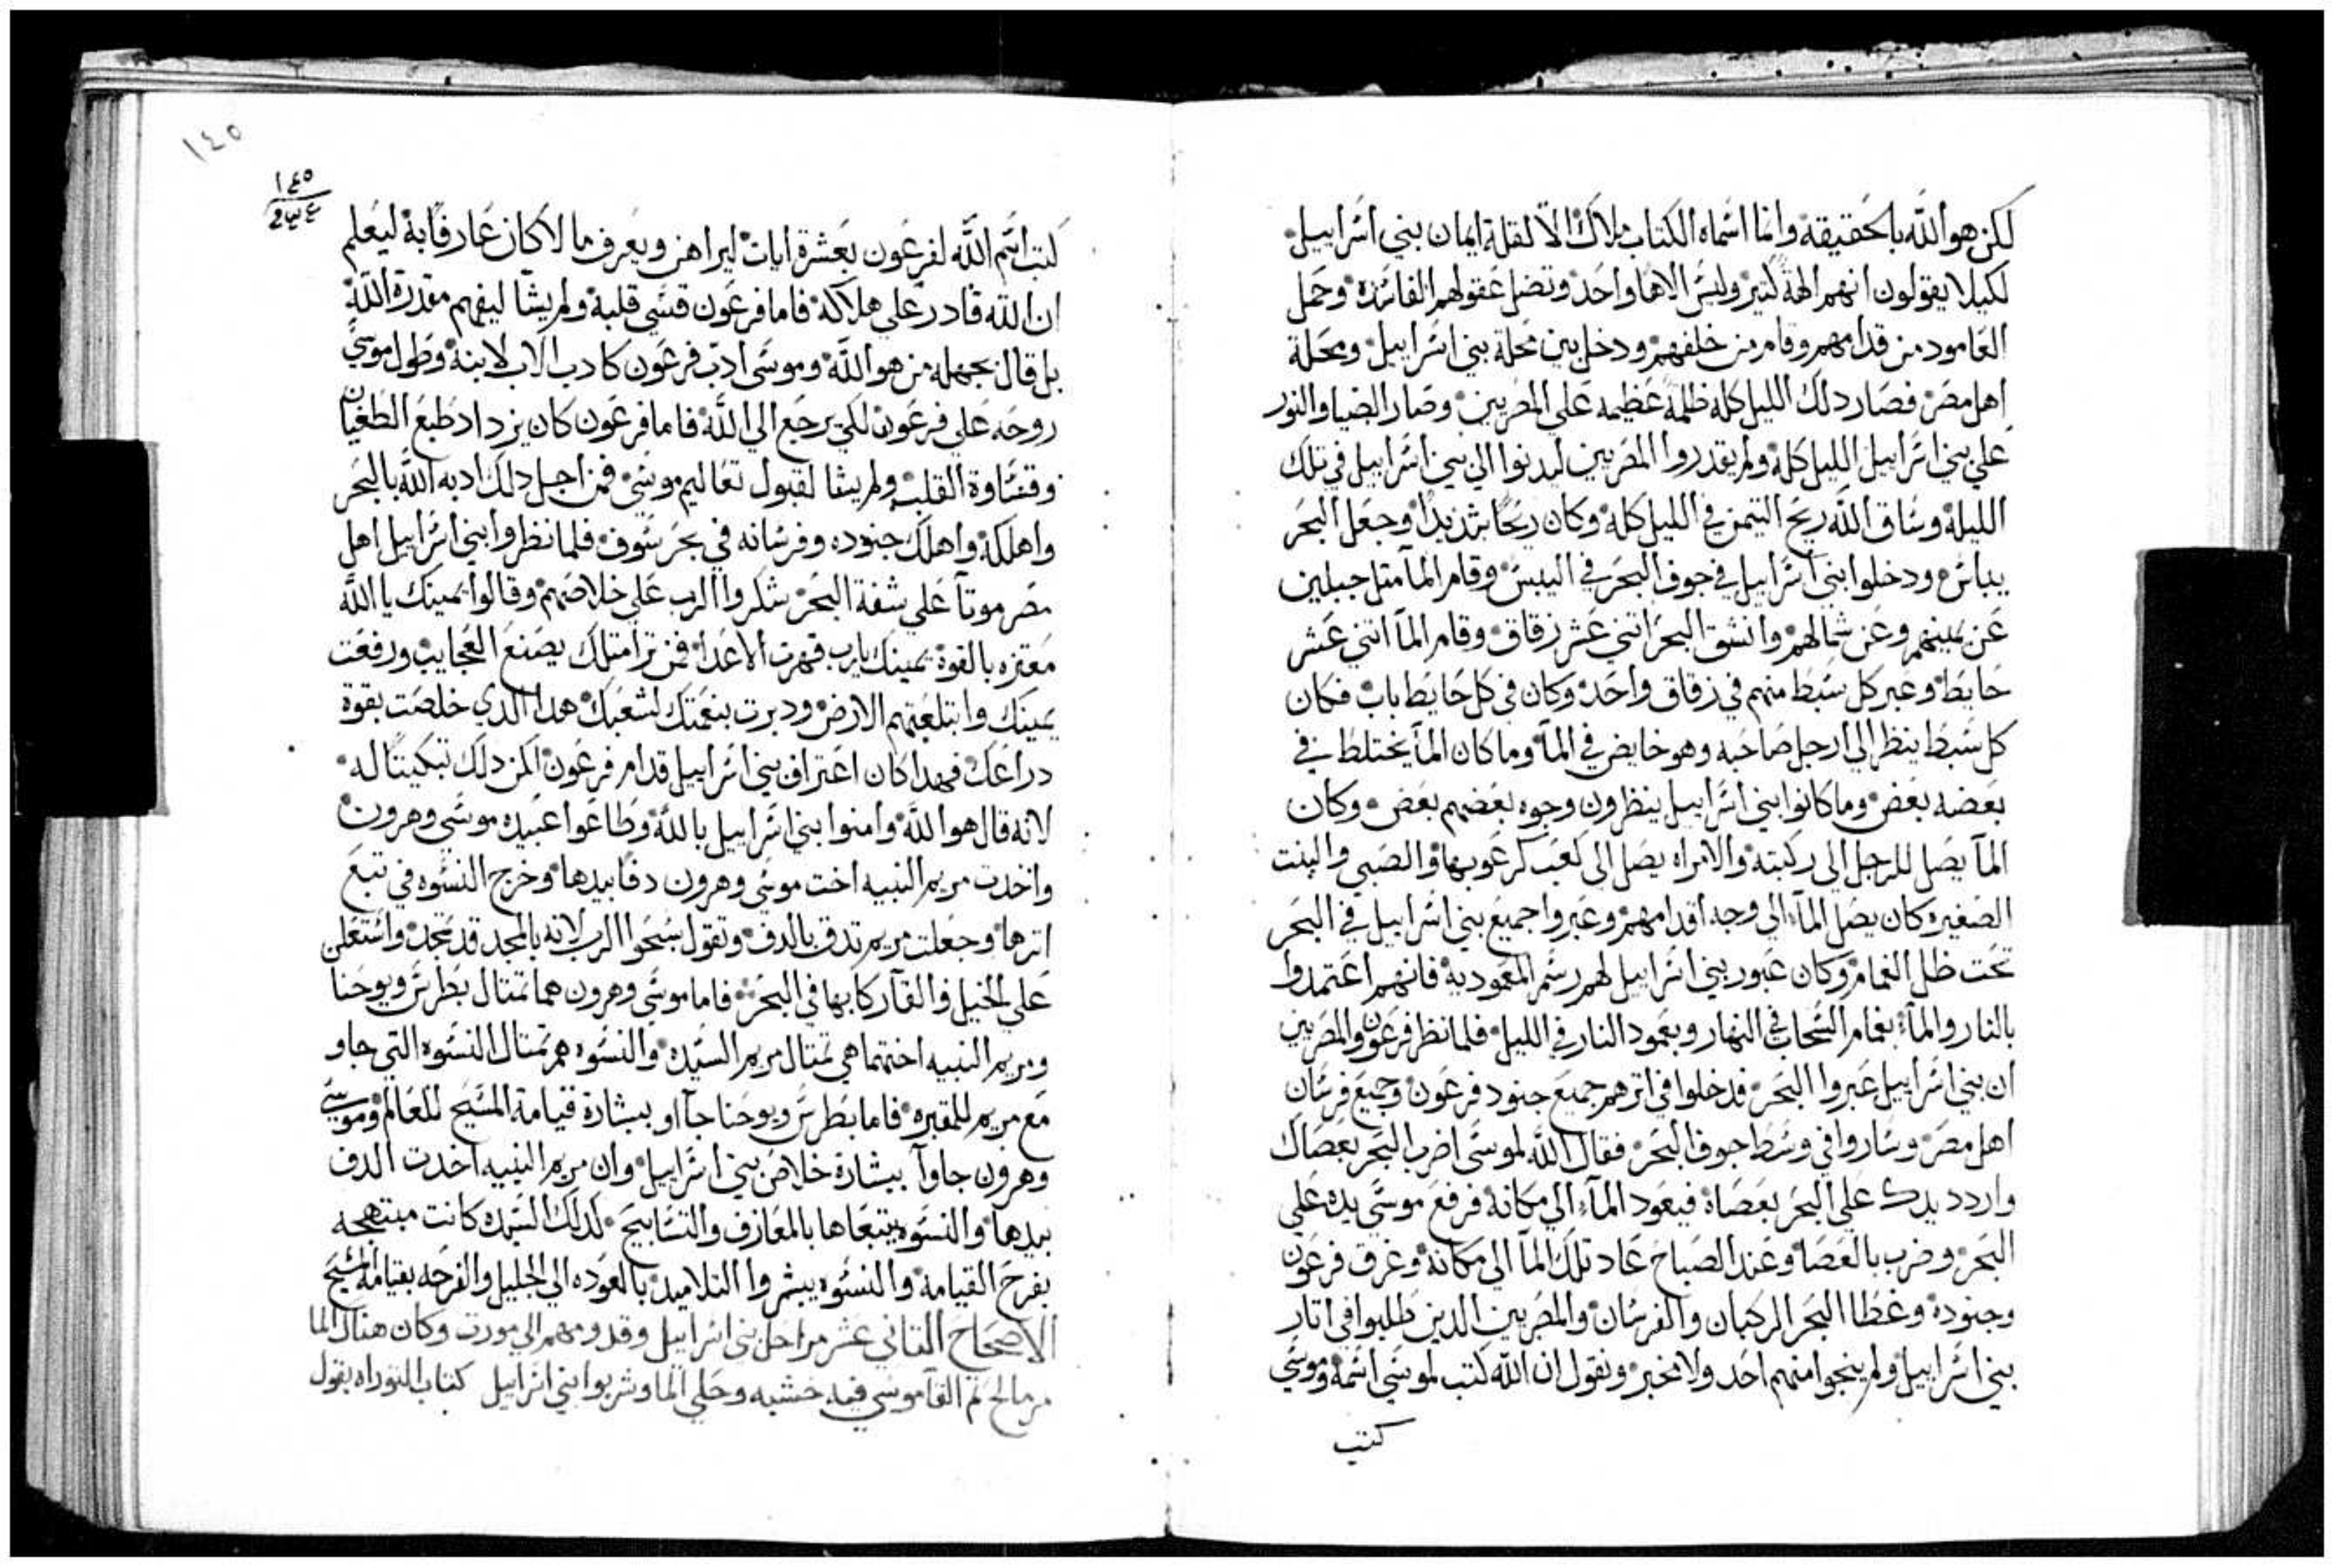 لكن هو الله بالحقيقة وانما اسماه الكتاب ملاك الا لقلة ايمان بني اسراييل
لكيلا يقولون انهم الهة كتير وليس الاها واحد وتضل عقولهم الفاسده وحمل
العامود من قدامهم وقام من خلفهم ودخل بين محلة بني اسراييل ومحلة
اهل مصر فصار دلك الليل كله ظلمة عظيمه على المصريين وصار الضيا والنور
علي بني اسراييل الليل كله ولم يقدروا المصريين ليدنوا الي بني اسراييل في تلك
الليلة وساق الله ريح التيمن في الليل كله وكان ريحا شديدا وجعل البحر
يباس ودخلوا بني اسراييل في جوف البحر في اليبس وقام المآ متل جبلين
عن يمينهم وعن شمالهم وانشق البحر اتني عشر زقاق وقام المآ اتني عشر
حايط وعبر كل سبط منهم في زقاق واحد وكان في كل حايط باب فكان
كل سبط ينظر الي ارجل صاحبه وهو خايض في المآ وما كان المآ يختلط في
بعضه بعض وما كانوا بني اسراييل ينظرون وجوه بعضهم بعض وكان
المآ يصل للرجل الي ركبته والامراه يصل الى كعب كرعوبها والصبي والبنت
الصغيره كان يصل المآء الي وجه اقدامهم وعبروا جميع بني اسراييل في البحر
تحت ظل الغمام وكان عبور بني اسراييل لهم رسم المعمودية فانهم اعتمدوا
بالنار والمآء بغمام السحاب في النهار وبعمود النار في الليل فلما نظر فرعون والمصريين
ان بني اسراييل عبروا البحر فدخلوا في اترهم جميع جنود فرعون وجميع فرسان
اهل مصر وساروا في وسط جوف البحر فقال الله لموسى اضرب البحر بعصاك
واردد يدك علي البحر بعصاة فيعود المآء الي مكانة فرفع موسي يده علي
البحر وضرب بالعصا وعند الصباح عاد تلك المآ الي مكانة وغرق فرعون
وجنوده وغطا البحر الركبان والفرسان والمصريين الدين طلبوا في اتار
بني اسراييل ولم ينجوا منهم احد ولا مخبر ونقول ان الله كتب لموسي اسمة وموسي
كتب
١٤٥
١٤٥
كتب اسم الله لفرعون بعشرة ايات ليراهن ويعرف ما لا كان عارفا به ليعلم
ان الله قادر علي هلاكه فاما فرعون قسي قلبة ولم يشا ليفهم مقدرة الله
بل قال بجهله من هو الله وموسي ادب فرعون كادب الاب لابنة وطول موسي
روحه علي فرعون لكي يرجع الي الله فاما فرعون كان يزداد طبع الطغيان
وقساوة القلب ولم يشا لقبول تعاليم موسي فمن اجل دلك ادبه الله بالبحر
واهلكة واهلك جنوده وفرسانه في بحر سوف فلما نظروا بني اسراييل اهل
مصر موتآ علي شفة البحر شكروا الرب علي خلاصهم وقالوا يمينك يا الله
معتزه بالقوة يمينك يارب قهرت الاعدا فمن ترا متلك يصنع العجايب ورفعت
يمينك وابتلعتهم الارض ودبرت بنعمتك لشعبك هدا الدي خلصت بقوة
دراعك فهدا كان اعتراف بني اسراييل قدام فرعون لكن دلك تبكيتا له
لانه قال هو الله وامنوا بني اسراييل بالله وطاعوا عبيده موسي وهرون
واخدت مريم النبيه اخت موسي وهرون دفا بيدها وخرج النسوه في تبع
اترها وجعلت مريم تدق بالدف وتقول سبحوا الرب لانه بالمجد قد تمجد واستعلن
علي الخيل والقآ ركابها في البحر فاما موسي وهرون هما تمتال بطرس ويوحنا
ومريم النبيه اختهما هي تمتال مريم السيده والنسوه هم تمتال النسوه التي جاو
مع مريم للمقبره فاما بطرس ويوحنا جآاو ببشارة قيامة المسيح للعالم وموسي
وهرون جاوآ ببشارة خلاص بني اسراييل وان مريم النبيه اخدت الدف
بيدها والنسوه يتبعاها بالمعازف والتسابيح لدلك السيده كانت مبتهجه
بفرح القيامة والنسوه يبشروا التلاميد بالعوده الي الجليل والفرحه بقيامة المسيح
الاصحاح التاني عشر مراحل بني اسراييل وقدومهم الي مورت وكان هناك الما
مر مالح تم القآ موسي فيه خشبه وحلي الما وشربوا بني اسراييل كتاب التوراه يقول